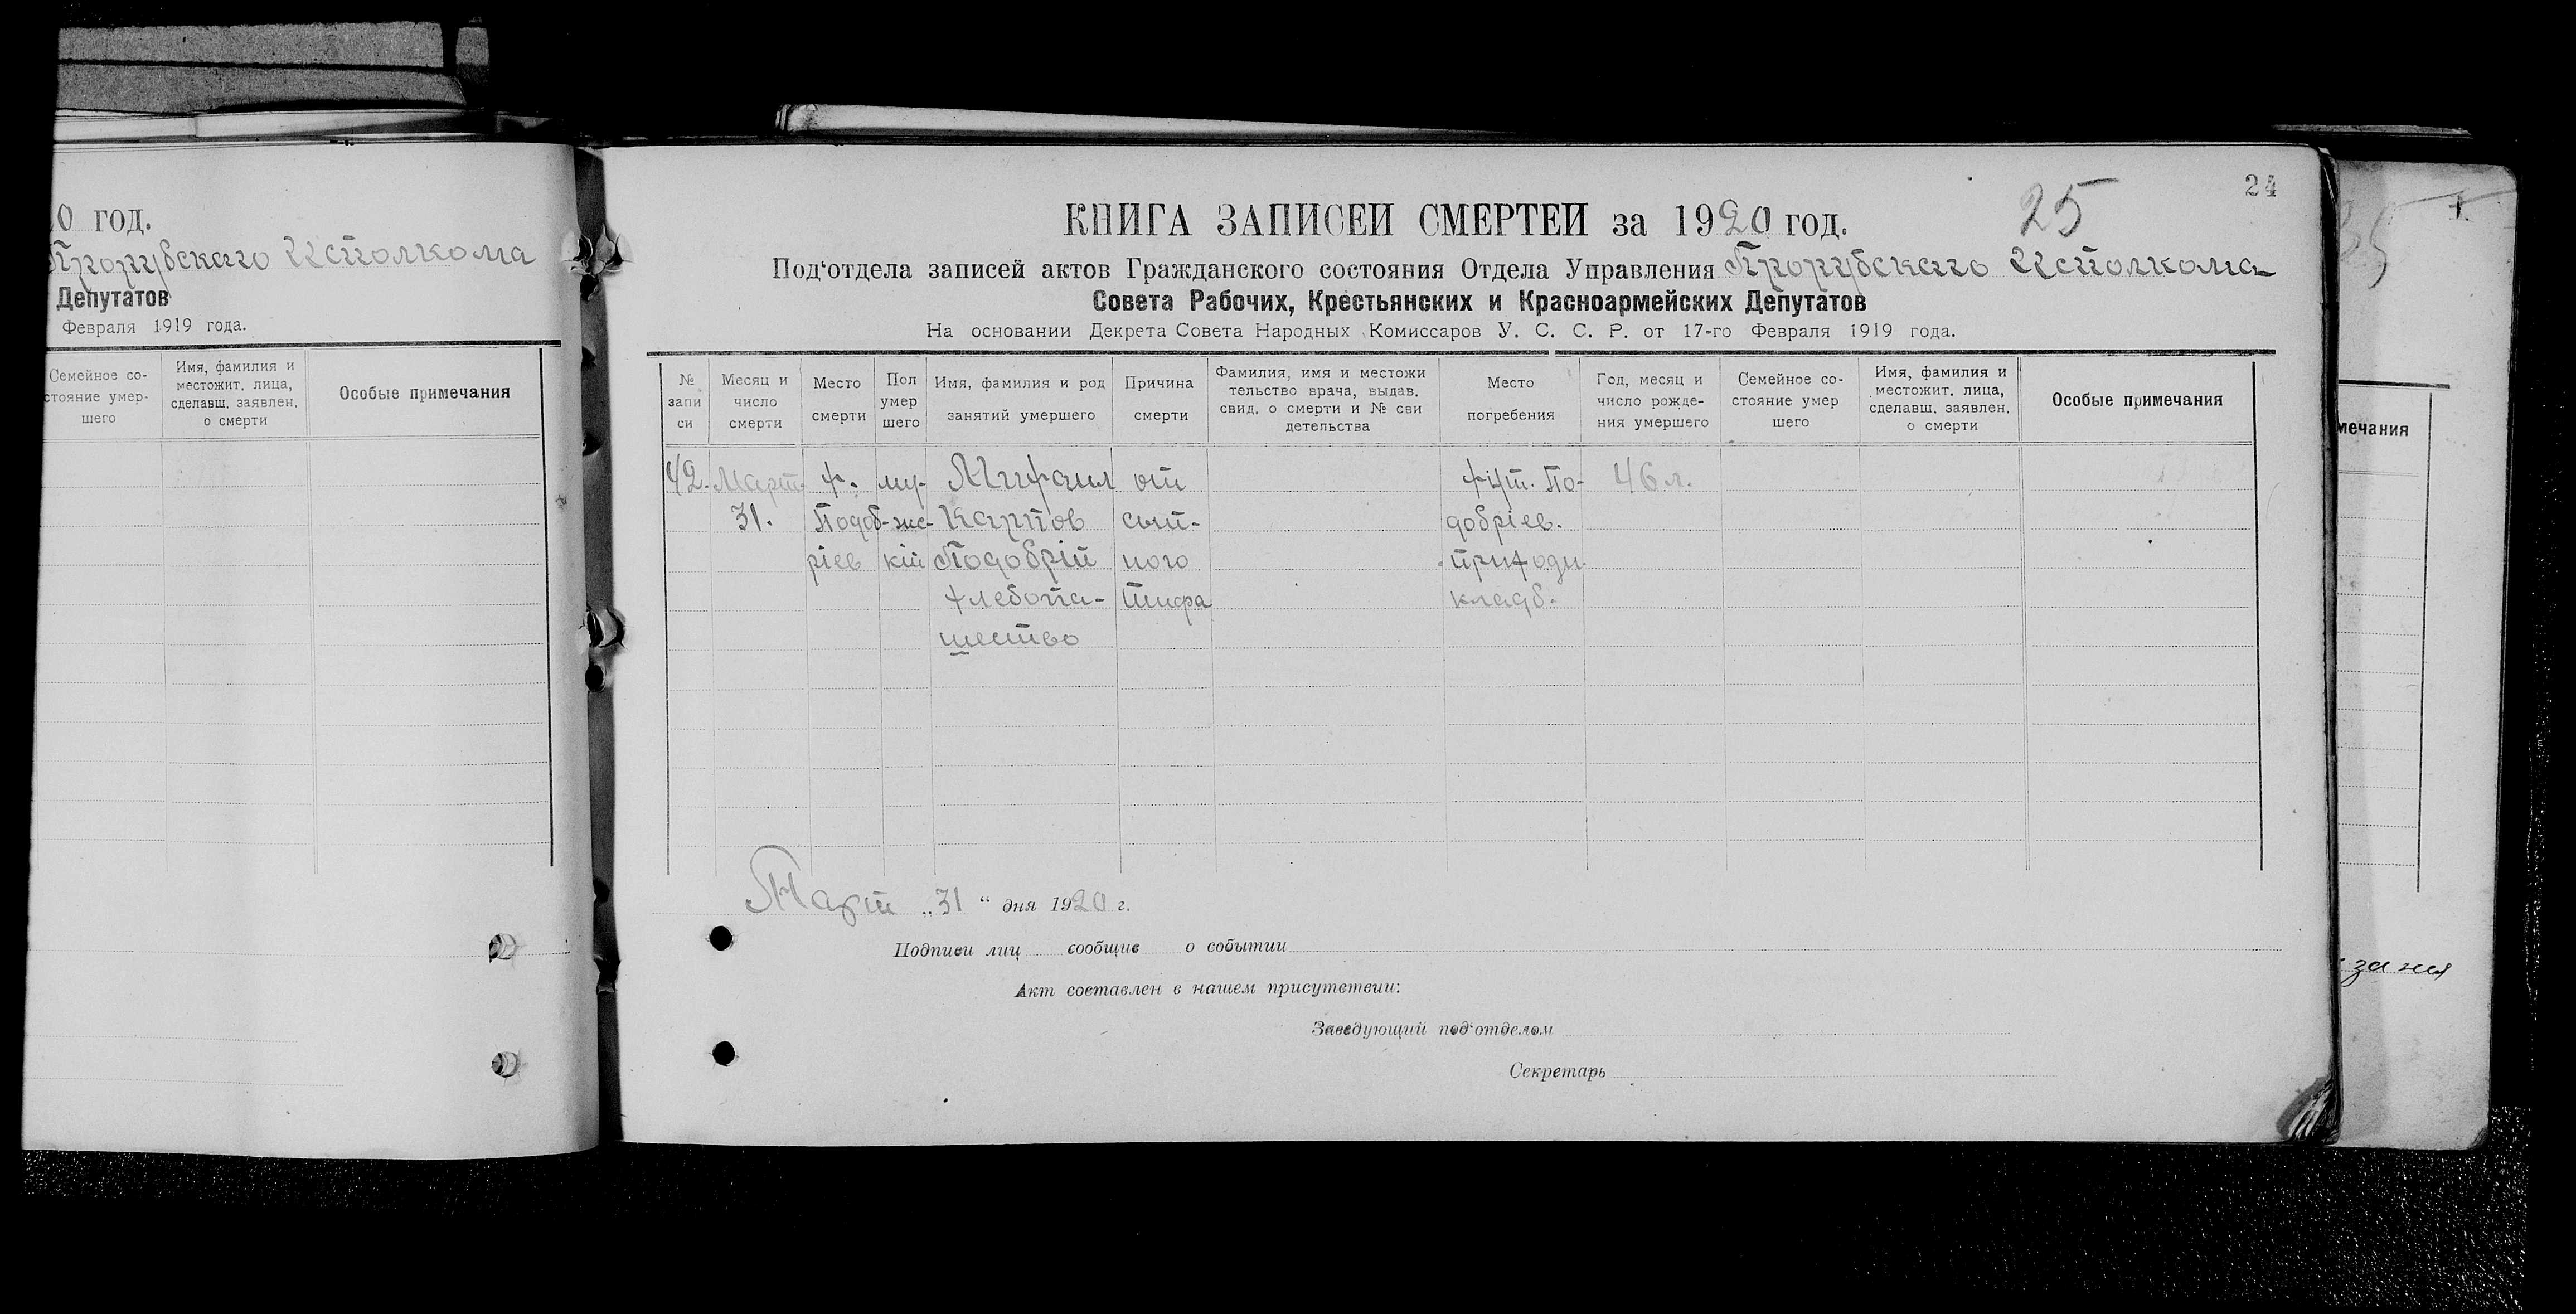 0 год.
Прорубскаго Исполкома
Депутатов
Февраля 1919 года.
Семейное со-
стояние умер-
шего
Имя, фамилия и
местожит. лица,
сделавш. заявлен.
о смерти
Особые примечания
24
25
КНИГА ЗАПИСЕЙ СМЕРТЕЙ за 1920 год.
Под‘отдела записей актов Гражданского состояния Отдела Управления Прорубскаго Исполкома
Совета Рабочих, Крестьянских и Красноармейских Депутатов
На основании Декрета Совета Народных Комиссаров У. С. С. Р. от 17-го Февраля 1919 года.
№
запи
си
Месяц и
число
смерти
Место
смерти
Пол
умер
шего
Имя, фамилия и род
занятий умершего
Причина
смерти
Фамилия, имя и местожи
тельство врача, выдав.
свид. о смерти и № сви
детельства
Место
погребения
Год, месяц и
число рожде-
ния умершего
Семейное со-
стояние умер
шего
Имя, фамилия и
местожит. лица,
сделавш. заявлен.
о смерти
Особые примечания
42.
Март
31.
х.
Подоб-
ріев
му-
жс-
кій
Михаил
Карпов
Подобрій
хлебопа-
шество
от
сып-
ного
тифа
хут. По-
добріев.
приходи
кладб.
46 л.
Март „31“ дня 1920 г.
Подписи лиц сообщив о событии
Акт составлен в нашем присутствии:
Заведующий под‘отделом
Секретарь
35
мечания